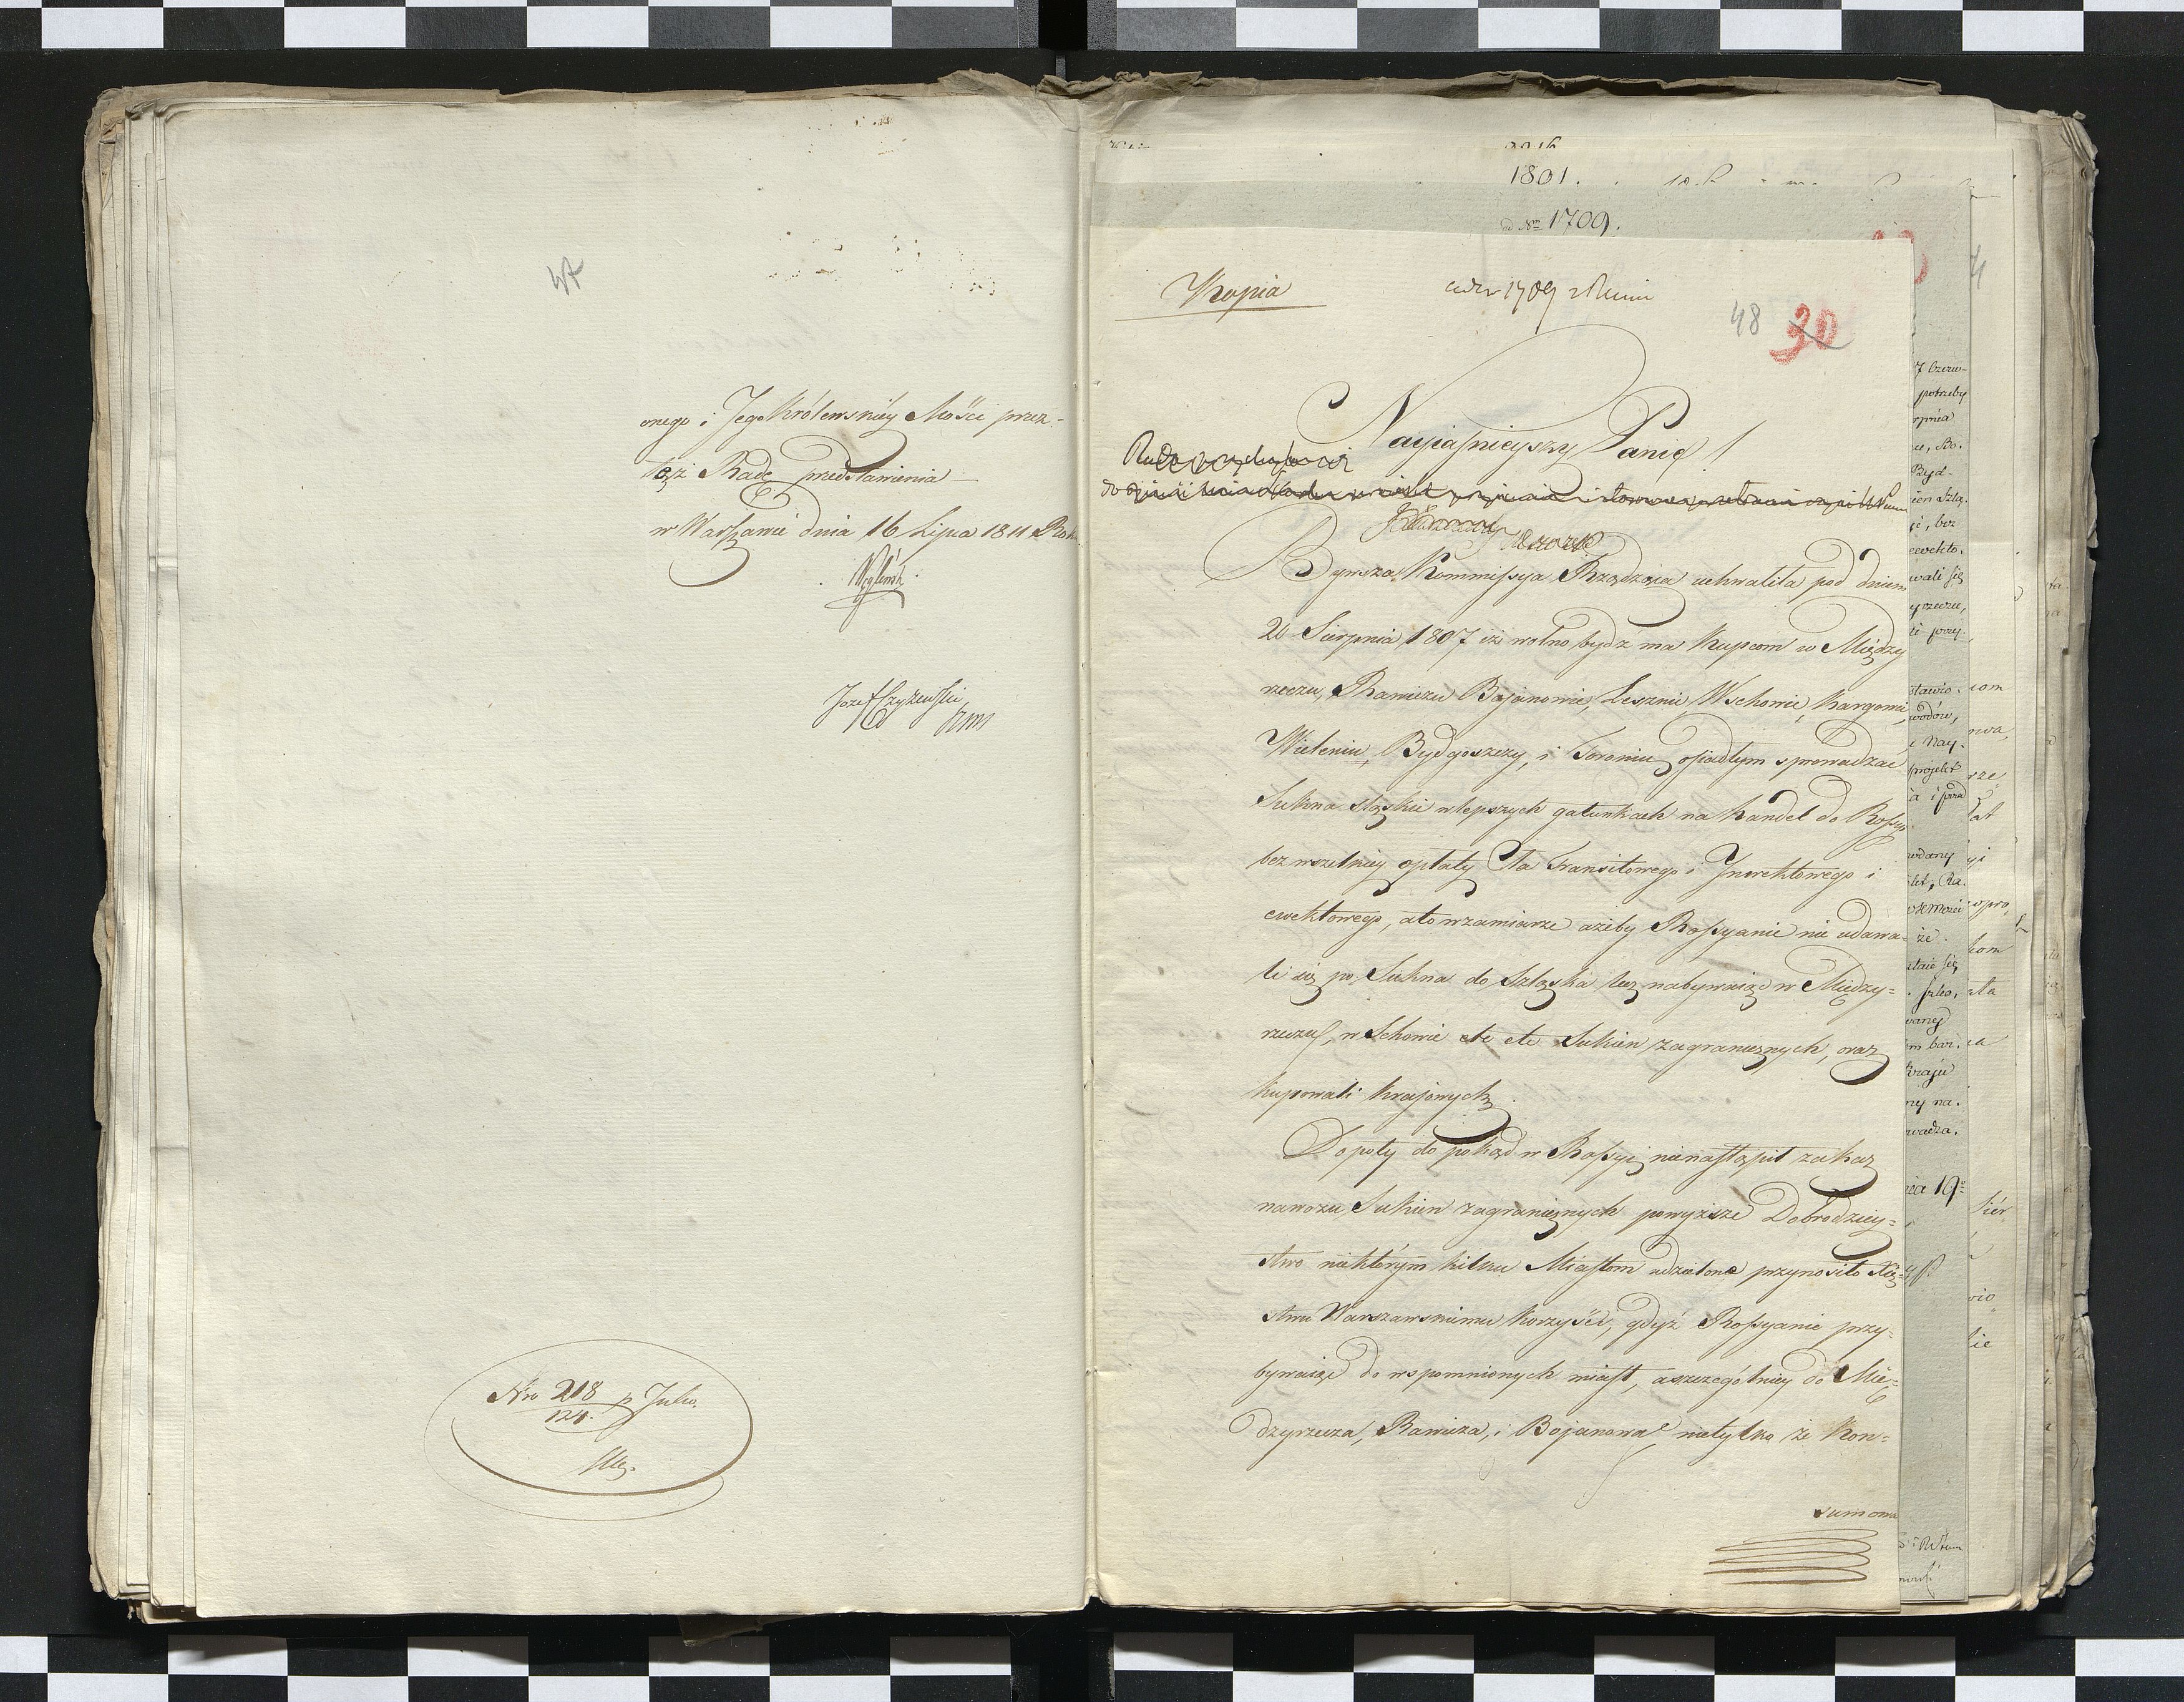 47
onego i Jego Królewskiéy Mości przez
tęż Radę przedstawienia
w Warszawie dnia 16 Lipca 1811 Roku
Węgleński
Jozef Czyżewski
Nro 218 p Julio.
121.
1801.
ad Nrm 1709.
Kopia
48 30
Nayiaśnieyszy Panie!
Bywsza Kommissya Rządząca uchwaliła pod dniem
20 Sierpnia 1807 iż wolno bydź ma Kupcom w Między
rzeczu, Rawiczu Bojanowie, Lesznie, Wschowie, Kargowie,
Wieleniu, Bydgoszczy, i Toroniu osiadłym sprowadzać
Sukna sląskie wlepszych gatunkach na handel do Rossyi
bez wszelkiey opłaty Cła Transitowego i Inwektowego i
ewektowego, a to wzamiarze ażeby Rossyanie nie udawa=
li się po Sukna do Szląska lecz nabywaiąc w Miedzy=
rzeczu, w Schowie etc etc Sukien zagranicznych, oraz
kupowali krajowych.
Dopoty do pokąd w Rossyi nienastąpił zakaz
nawozu Sukien zagranicznych powyższe Dobrodziey=
stwo niektórym kilku Miastom udzielone przynosiło Xię=
stwu Warszawskiemu korzyści, gdyż Rossyanie przy=
bywaiąc do wspomnionych miast, a szczególniey do Mię=
dzyrzecza, Rawicza, i Bojanowa nietylko że Kon=
sumowa
7 Czerw-
potrzeby
Byd-
wali się
stawio.
wodów,
e Nay-
projekt
że
kraju
ny na.
wadza.